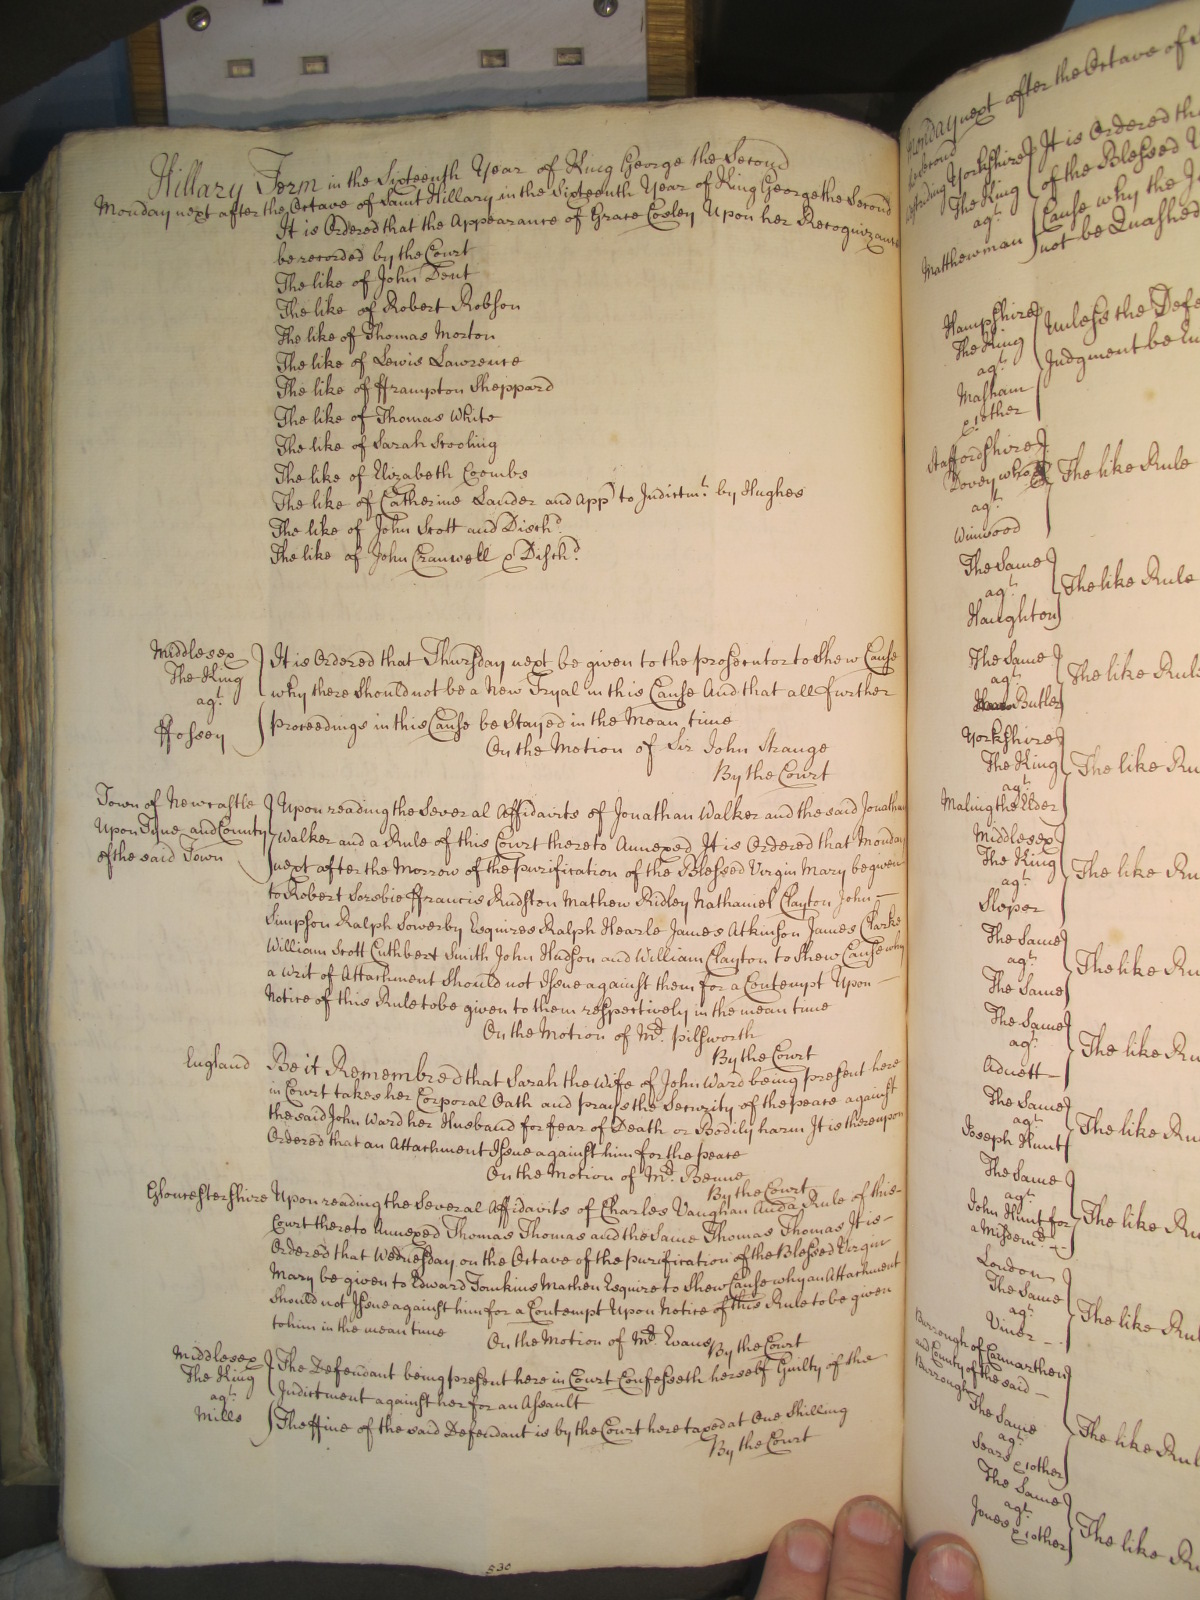 Hillary Term in the Sixteenth Year of King George the Second
Monday next after the Octave of Saint Hillary in the Sixteenth Year of King George the Second
It is Ordered that the Appearance of Grace Cosley Upon her Recognizance
be recorded by the Court
The like of John Dent
The like of Robert Robson
The like of Thomas Morton
The like of Lewis Lawrence
The like of fframpton Sheppard
The like of Thomas White
The like of Sarah
The like of Elizabeth Coombs
The like of Catherine Lander and App to Indictmt. by Hughes
The like of John Scott and Disch.d
The like of John Cranwell & Disch.d
Middlesex
The King
agt.
ffossey
It is Ordered that Thursday next be given to the prosecutor to Shew Cause
why there Should not be a New Tryal in this Cause And that all further
proceedings in this Cause be Stayed in the Mean time
On the Motion of Sir John Strange
By the Court
Town of Newcastle
Upon Tyne and County
of the said Town
Upon reading the Several Affidavits of Jonathan Walker and the said Jonathan
Walker and a Rule of this Court thereto Annexed It is Ordered that Monday
next after the Morrow of the purification of the Blessed Virgin Mary be given
to Robert Sorsbie ffrancis Rudston Mathew Ridley Nathaniel Clayton John
Simpson Ralph Sowerby Esquires Ralph Hearle James Atkinson James Clarke
William Scott Cuthbert Smith John Hudson and William Clayton to Shew Cause why
a Writ of Attachment Should not Issue against them for a Contempt Upon
Notice of this Rule to be given to them respectively in the mean time
On the Motion of Mr. pilsworth
By the Court
England
Be it Remembred that Sarah the Wife of John Ward being present here
in Court takes her Corporal Oath and prays the Security of the peace against
the said John Ward her Husband for fear of Death or Bodily harm It is thereupon
Ordered that an Attachment Issue against him for the peace
On the Motion of Mr. Benne
By the Court
Gloucestershire
Upon reading the Several Affidavits of Charles Vaughan And a Rule of this
Court thereto Annexed Thomas Thomas and the Same Thomas Thomas It is
Ordered that Wednesday on the Octave of the purification of the Blessed Virgin
Mary be given to Edward Tomkins Machen Esquire to Shew Cause why an Attachment
Should not Issue against him for a Contempt Upon Notice of this Rule to be given
to him in the mean time
On the Motion of Mr. Evans By the Court
Middlesex
The King
agt.
Mills
The Defendant being present here in Court Confesseth herself Guilty of the
Indictment against her for an Assault
The ffine of the said Defendant is by the Court here taxed at One Shilling
By the Court
530
Monday next after the Octave of
Yorkshire
The King
agt.
Matthewman
It is Ordered
of the Blessed
Cause why the
not be Quashed
Hampshire
The King
agt.
Masham
& other
Unless the
Judgment be
Staffordshire
Dovey
agt.
Winwood
The like Rule
The Same
agt.
Haughton
The like Rule
The Same
agt.
Butler
The like
Yorkshire
The King
agt.
Maling the Elder
The like
Middlesex
The King
agt.
Sloper
The like
The Same
agt.
The Same
The like
The Same
agt.
Adnett
The like
The Same
agt.
Joseph Hunt
The like
The Same
agt.
John Hunt for
a Misdemr.
The like
London
The Same
agt.
Viner
The like
Burrough of Carmarthen
and County of the said
Burrough
The Same
agt.
Sears & other
The like
The Same
agt.
Jones & other
The like